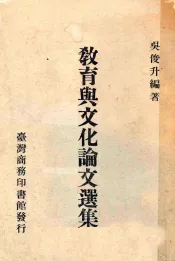 吳俊升編著
教育與文化論文選集
臺灣商務印書館發行